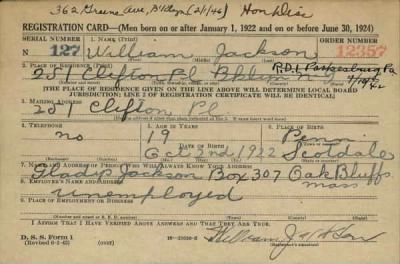 362 Greene Ave, Bklyn (2/1/46) Hon Disc
REGISTRATION CARD—(Men born on or after January 1, 1922 and on or before June 30, 1924)
SERIAL NUMBER 1. NAME (Print) ORDER NUMBER
127 William Jackson 12357
(First) (Middle) (Last)
R.D.1 Parkesburg Pa
2. PLACE OF RESIDENCE (Print)
251 Clifton Pl Bklyn N.Y.
(THE PLACE OF RESIDENCE GIVEN ON THE LINE ABOVE WILL DETERMINE LOCAL BOARD
JURISDICTION; LINE 2 OF REGISTRATION CERTIFICATE WILL BE IDENTICAL)
3. MAILING ADDRESS
251 Clifton Pl
4. TELEPHONE 5. AGE IN YEARS 6. PLACE OF BIRTH
no 19 Penn
DATE OF BIRTH
Oct 2nd 1922 Scotdale
7. NAME AND ADDRESS OF PERSON WHO WILL ALWAYS KNOW YOUR ADDRESS
Gladys Jackson Box 307 Oak Bluffs
Mass
8. EMPLOYER'S NAME AND ADDRESS
unemployed
9. PLACE OF EMPLOYMENT OR BUSINESS
I AFFIRM THAT I HAVE VERIFIED ABOVE ANSWERS AND THAT THEY ARE TRUE.
D. S. S. Form 1
William Jackson